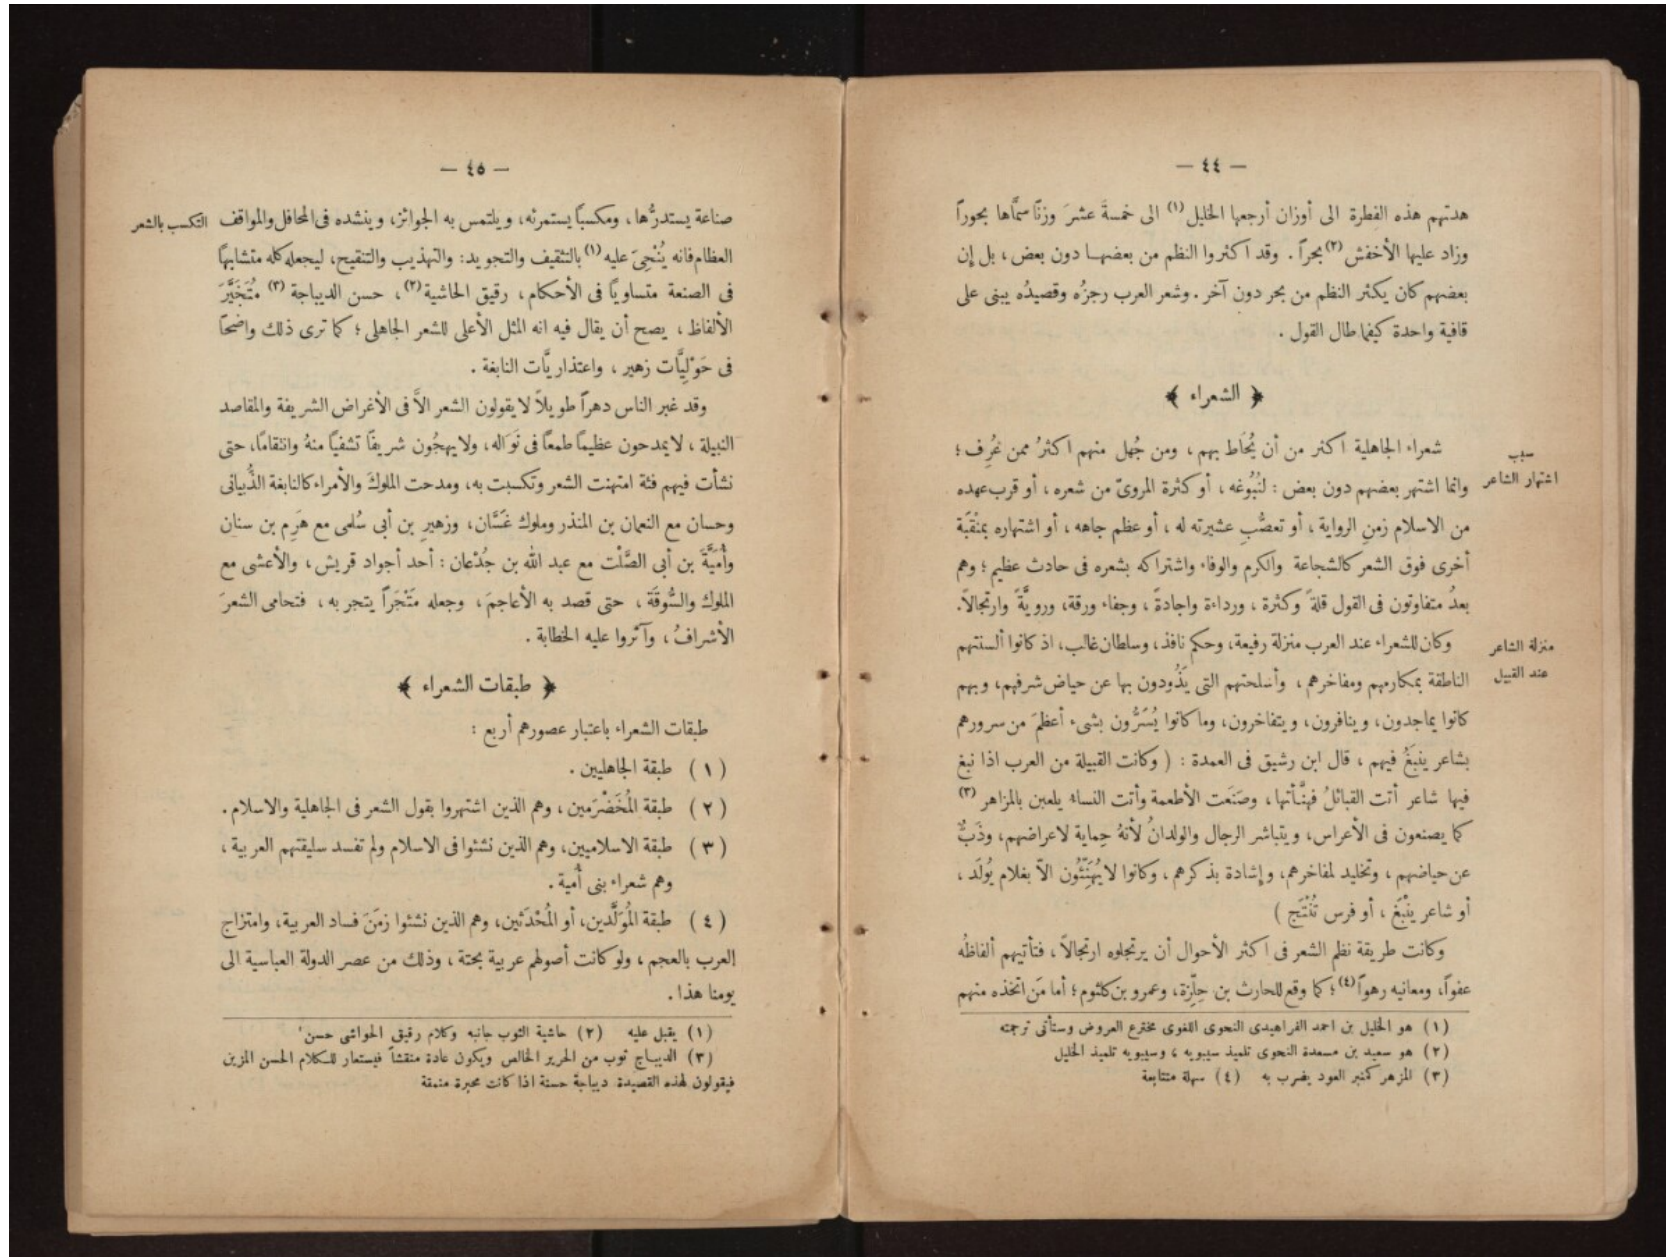 — ٤٤ —
هدتهم هذه الفِطرة الى أوزان أرجعها الخليل (١) الى خمسةَ عشرَ وزنًا سمَّاها بحوراً
وزاد عليها الأخفش (٢) بحراً . وقد اكثروا النظم من بعضهـا دون بعض ، بل إن
بعضهم كان يكثر النظم من بحر دون آخر . وشعر العرب رجزُه وقصيدُه يبنى على
قافية واحدة كيفما طال القول .
﴿ الشعراء ﴾
شعراء الجاهلية اكثر من أن يُحَاط بهم ، ومن جُهل منهم اكثرُ ممن عُرِف ؛
سبب
اشتهار الشاعر
وانما اشتهر بعضهم دون بعض : لنُبُوغه ، أو كثرة المروىّ من شعره ، أو قرب عهده
من الاسلام زمنِ الرواية ، أو تعصُّب عشيرته له ، أو عظم جاهه ، أو اشتهاره بمنْقَبَة
أخرى فوق الشعر كالشجاعة والكرم والوفاء واشتراكه بشعره فى حادث عظيم ؛ وهم
بعدُ متفاوتون فى القول قلةً وكثرة ، ورداءة واجادةً ، وجفاء ورقة، ورويَّةً وارتجالاً.
وكان للشعراء عند العرب منزلة رفيعة، وحكم نافذ، وسلطان غالب، اذ كانوا ألسنتهم
منزلة الشاعر
عند القبيل
الناطقة بمكارمهم ومفاخرهم ، وأسلحتهم التى يَذُودون بها عن حياض شرفهم، وبهم
كانوا يماجدون، وينافرون، ويتفاخرون، وما كانوا يُسَرُّون بشىء أعظمَ من سرورهم
بشاعر ينبَغُ فيهم ، قال ابن رشيق فى العمدة : ( وكانت القبيلة من العرب اذا نبغ
فيها شاعر أتت القبائلُ فهنَّأتها، وصَنَعت الأطعمة وأتت النساء يلعبن بالمزاهر (٣)
كما يصنعون فى الأعراس، ويتباشر الرجال والولدانُ لأنهُ حِماية لاعراضهم، وذَبٌّ
عن حياضهم ، وتخليد لمفاخرهم، وإشادة بذكرهم ، وكانوا لا يُهَنِّئُون الاّ بغلام يُولَد ،
أو شاعر ينْبَغ ، أو فرس تُنْتَج )
وكانت طريقة نظم الشعر فى اكثر الأحوال أن يرتجلوه ارتجالاً ، فتأتيهم ألفاظُه
عفواً، ومعانيه رهواً (٤) ؛ كما وقع للحارث بن حِلِّزة، وعمرو بن كلثوم ؛ أما مَن اتخذه منهم
(١) هو الخليل بن احمد الفراهيدى النحوى اللغوى مخترع العروض وستأتى ترجمته
(٢) هو سعيد بن مسعدة النحوى تلميذ سيبويه ، وسيبويه تلميذ الخليل
(٣) المزهر كمنبر العود يضرب به (٤) سهلة متتابعة
— ٤٥ —
صناعة يستدرُّها ، ومكسبًا يستمرئه، ويلتمس به الجوائز، وينشده فى المحافل والمواقف
التكسب بالشعر
العظام فانه يُنْحِىَ عليه (١) بالتثقيف والتجويد: والتهذيب والتنقيح، ليجعله كله متشابهًا
فى الصنعة متساويًا فى الأحكام ، رقيق الحاشية (٢) ، حسن الديباجة (٣) مُتَخَيَّرَ
الألفاظ ، يصح أن يقال فيه انه المثل الأعلى للشعر الجاهلى ؛ كما ترى ذلك واضحًا
فى حَوْلِيَّات زهير ، واعتذاريَّات النابغة .
وقد غبر الناس دهراً طويلاً لا يقولون الشعر الاَّ فى الأغراض الشريفة والمقاصد
النبيلة ، لا يمدحون عظيمًا طمعًا فى نَوَاله، ولا يهجُون شريفًا تشفيًا منهُ وانتقامًا، حتى
نشأت فيهم فئة امتهنت الشعر وتكسبت به، ومدحت الملوكَ والأمراء كالنابغة الذُّبيانى
وحسان مع النعمان بن المنذر وملوك غَسَّان، وزهيرِ بن أبى سُلمى مع هَرِم بن سنان
وأُمَيَّةَ بن أبى الصَّلْت مع عبد الله بن جُدْعان : أحد أجواد قريش ، والأعشى مع
الملوك والسُّوقَة ، حتى قصد به الأعاجمَ ، وجعله مَتْجَراً يتجر به ، فتحامى الشعرَ
الأشرافُ ، وآثروا عليه الخطابة .
﴿ طبقات الشعراء ﴾
طبقات الشعراء باعتبار عصورهم أربع :
( ١ ) طبقة الجاهليين .
( ٢ ) طبقة المُخَضْرَمين ، وهم الذين اشتهروا بقول الشعر فى الجاهلية والاسلام .
( ٣ ) طبقة الاسلاميين، وهم الذين نشئوا فى الاسلام ولم تفسد سليقتهم العربية ،
وهم شعراء بنى أُمية .
( ٤ ) طبقة المُوَلَّدين، أو المُحْدَثين، وهم الذين نشئوا زمَنَ فساد العربية، وامتزاج
العرب بالعجم ، ولو كانت أصولهم عربية بحتة ، وذلك من عصر الدولة العباسية الى
يومنا هذا .
(١) يقبل عليه (٢) حاشية الثوب جانبه وكلام رقيق الحواشى حسن
(٣) الديباج ثوب من الحرير الخالص ويكون عادة منقشاً فيستعار للكلام الحسن المزين
فيقولون لهذه القصيدة ديباجة حسنة اذا كانت محبرة منمقة